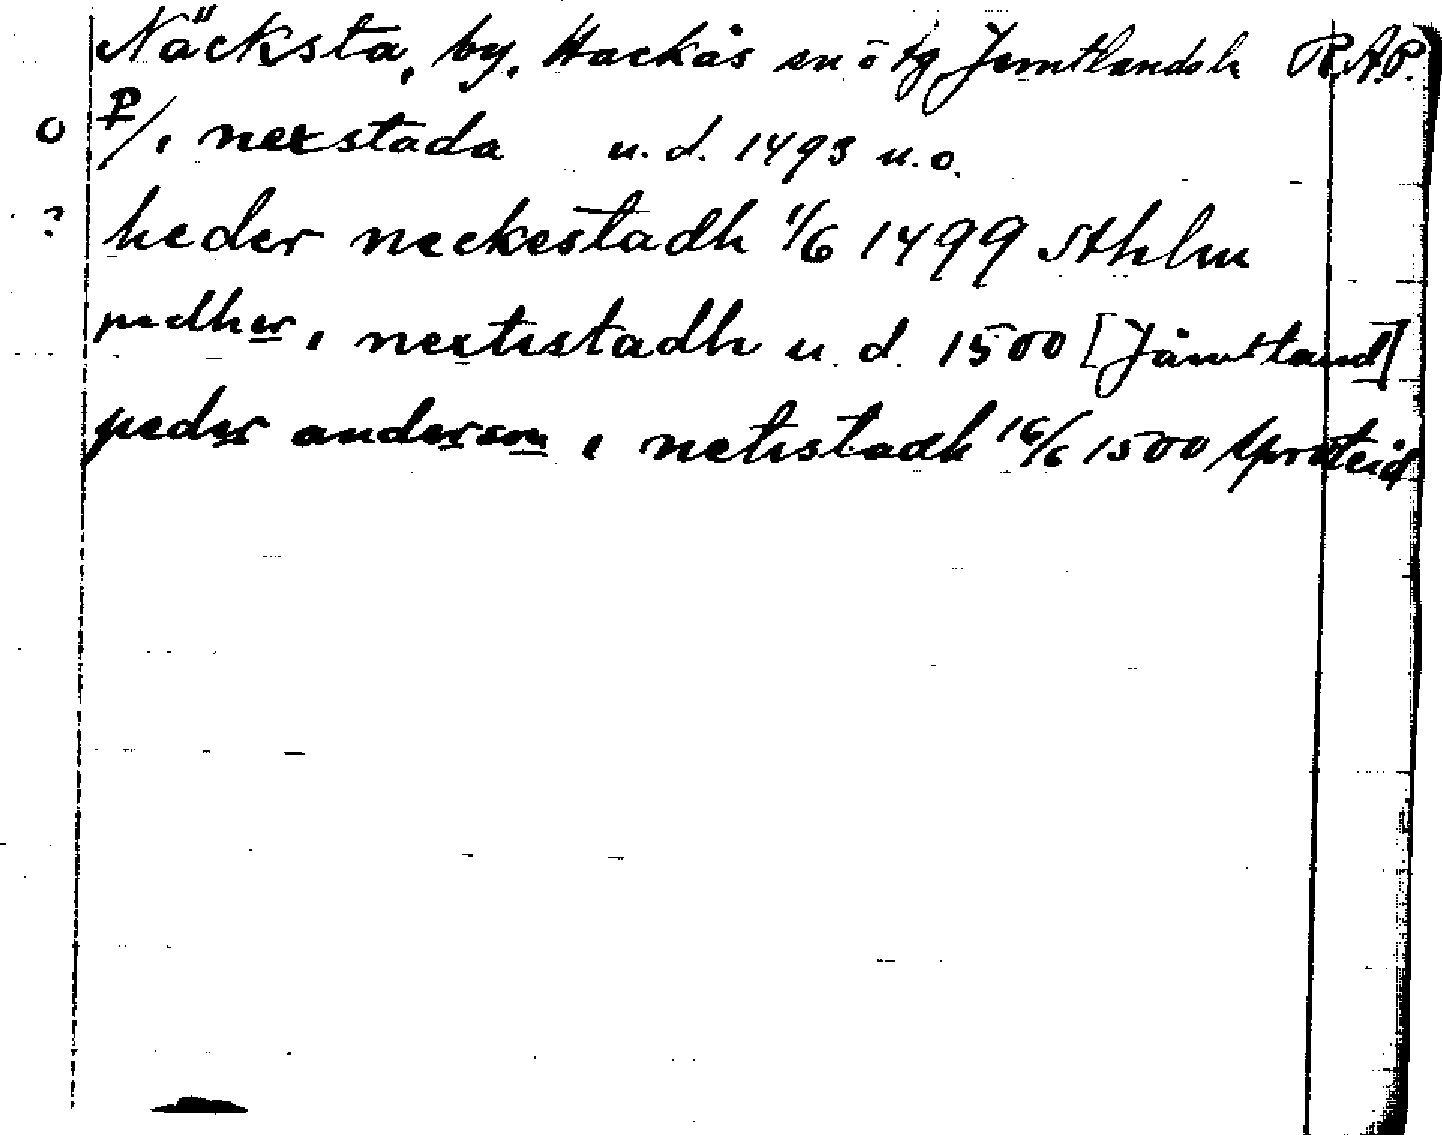 Näcksta, by, Hackås sn ö tg Jemtlands l. R.A.P.
o P/, nexstada u. d. 1493 u. o.
? heder neckestadh 1/6 1499 Sthlm
pedher i nextistadh u. d. 1500 [Jämtland]
peder anderson i netistadh 16/6 1500